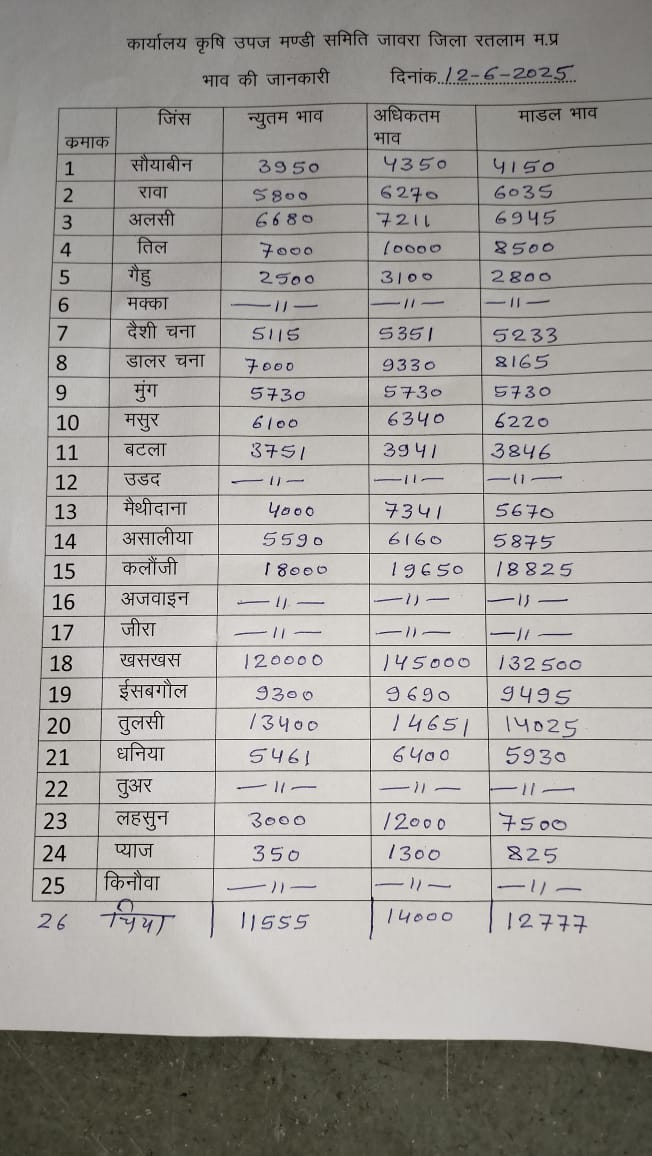 कार्यालय कृषि उपज मण्डी समिति जावरा जिला रतलाम म.प्र
भाव की जानकारी दिनांक..12-6-2025
कमाक जिंस न्युतम भाव अधिकतम भाव माडल भाव
1 सौयाबीन 3950 4350 4150
2 रावा 5800 6270 6035
3 अलसी 6680 7211 6945
4 तिल 7000 10000 8500
5 गैहु 2500 3100 2800
6 मक्का —11— —11— —11—
7 दैशी चना 5115 5351 5233
8 डालर चना 7000 9330 8165
9 मुंग 5730 5730 5730
10 मसुर 6100 6340 6220
11 बटला 3751 3941 3846
12 उडद —11— —11— —11—
13 मैथीदाना 4000 7341 5670
14 असालीया 5590 6160 5875
15 कलौंजी 18000 19650 18825
16 अजवाइन —11— —11— —11—
17 जीरा —11— —11— —11—
18 खसखस 120000 145000 132500
19 ईसबगौल 9300 9690 9495
20 तुलसी 13400 14651 14025
21 धनिया 5461 6400 5930
22 तुअर —11— —11— —11—
23 लहसुन 3000 12000 7500
24 प्याज 350 1300 825
25 किनौवा —11— —11— —11—
26 चिया 11555 14000 12777